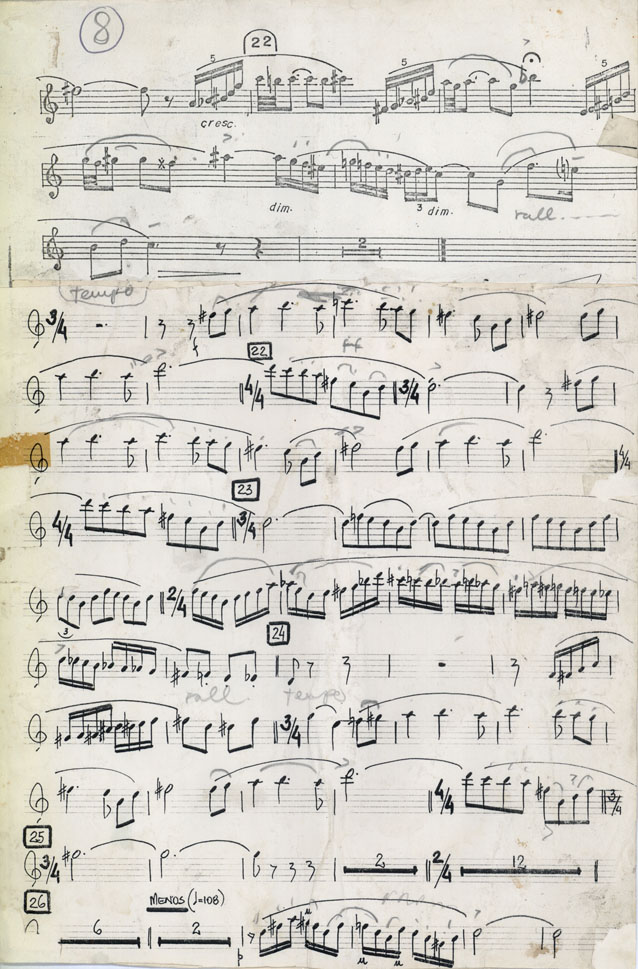 8
5 22 5 5
cresc.
dim. 3 dim. rall.
2
tempo
3/4
f ff
22
4/4 3/4
4/4
23
4/4 3/4
2/4
3 24
rall tempo
3/4
4/4 3/4
25
3/4 2 2/4 12
26 MENOS (♩=108)
6 2
p